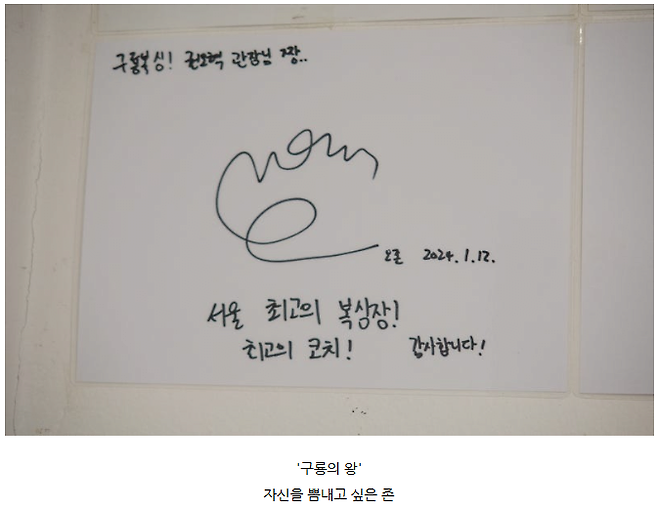 구룡복싱! 권오혁 관장님 짱..
오존 2024.1.12.
서울 최고의 복싱장!
최고의 코치! 감사합니다!
'구룡의 왕'
자신을 뽐내고 싶은 존